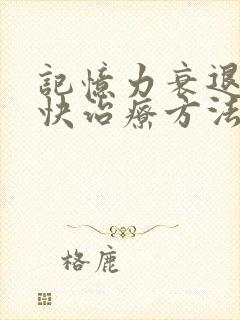 記憶力衰退
快治療方法
格鹿